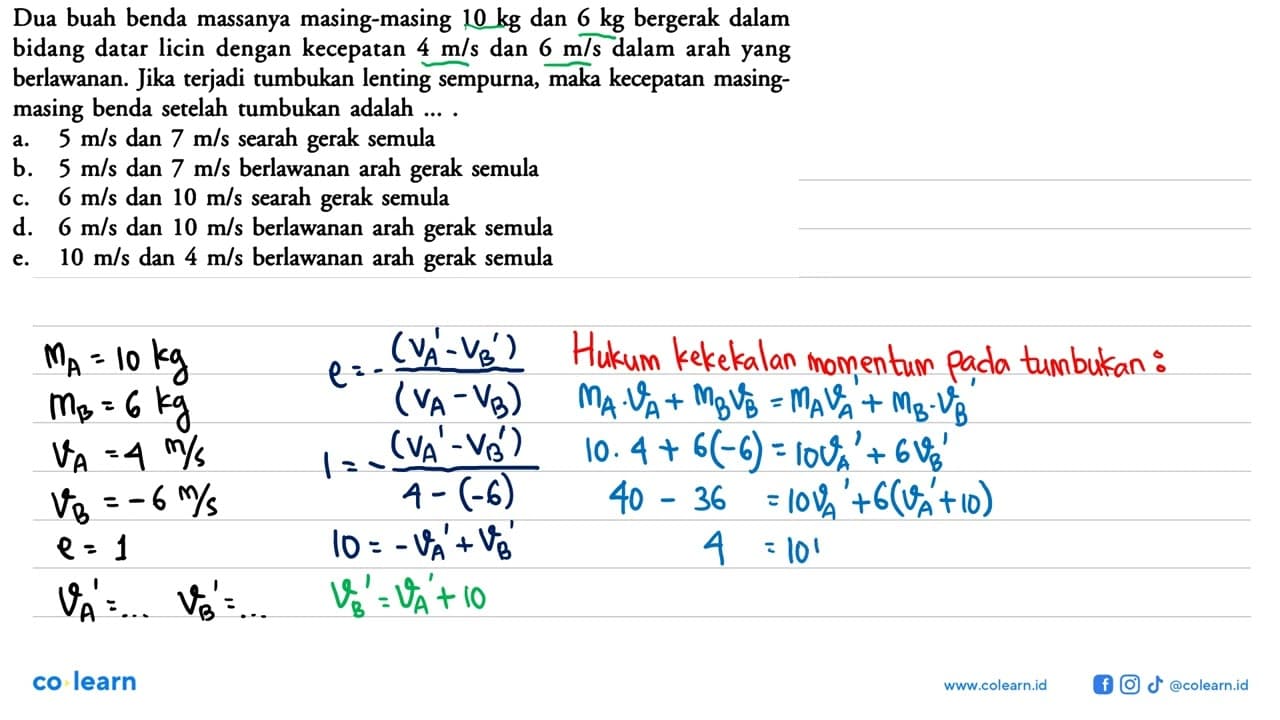 Dua buah benda massanya masing-masing 10 kg dan 6 kg bergerak dalam
bidang datar licin dengan kecepatan 4 m/s dan 6 m/s dalam arah yang
berlawanan. Jika terjadi tumbukan lenting sempurna, maka kecepatan masing-
masing benda setelah tumbukan adalah ... .
a. 5 m/s dan 7 m/s searah gerak semula
b. 5 m/s dan 7 m/s berlawanan arah gerak semula
c. 6 m/s dan 10 m/s searah gerak semula
d. 6 m/s dan 10 m/s berlawanan arah gerak semula
e. 10 m/s dan 4 m/s berlawanan arah gerak semula
m_A = 10 kg
m_B = 6 kg
v_A = 4 m/s
v_B = -6 m/s
e = 1
v_A' = ... v_B' = ...
e = - (v_A' - v_B') / (v_A - v_B)
1 = - (v_A' - v_B') / 4 - (-6)
10 = -v_A' + v_B'
v_B' = v_A' + 10
Hukum kekekalan momentum pada tumbukan :
m_A . v_A + m_B v_B = m_A v_A' + m_B . v_B'
10 . 4 + 6(-6) = 10 v_A' + 6 v_B'
40 - 36 = 10 v_A' + 6(v_A' + 10)
4 = 10'
co learn
www.colearn.id
@colearn.id